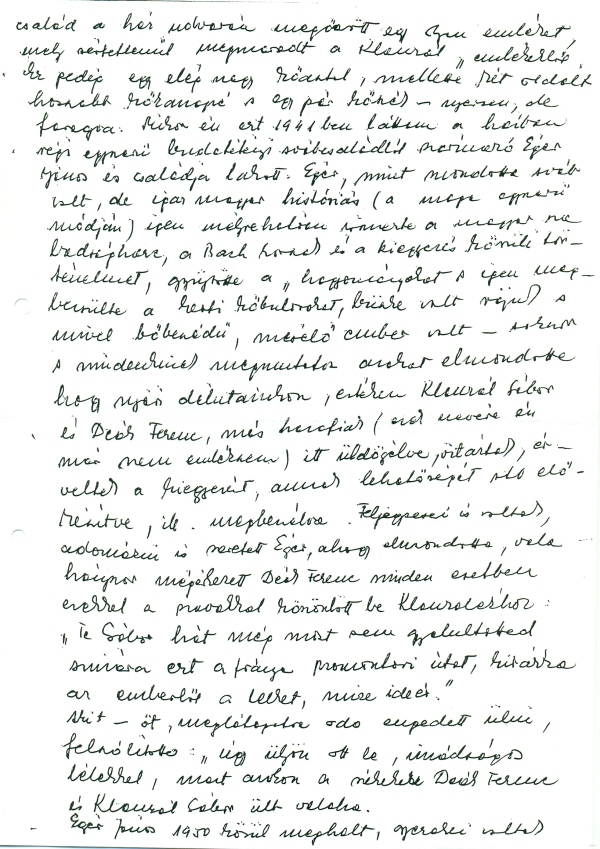 család a ház udvarán megőrzött egy ilyen emléket,
mely sértetlenül megmaradt a Klauzál „emlékül”.
Ez pedig egy elég nagy kőasztal, mellette két oldalt
hosszabb kőkanapé s egy pár kőszék – nyersen, de
faragva. Mikor én ezt 1941ben láttam a házban
régi egyszerű svábcsaládból származó Eger
János és családja lakott. Eger, mint mondotta sváb
volt, de igaz magyar históriás (a maga egyszerű
módján) igen mélyrehatóan ismerte a magyar sza
badságharc, a Bach korszak és a kiegyezés körüli tör-
ténelmet, gyűjtötte a „hagyományokat s igen meg-
becsülte a kerti kőbútorokat, büszke volt rájuk s
mivel bőbeszédű, mesélő ember volt – sokszor
s mindenkinek megmutatta azokat elmondotta
hogy nyári délutánokon, estéken Klauzál Gábor
és Deák Ferenc, más hazafiak (akik nevére én
már nem emlékszem) itt üldögélve, vitáztak, ér-
veltek a kiegyezést, annak lehetőségét stb elő-
készítve, ill. megbeszélve. Feljegyzései is voltak,
adomázni is szeretett Eger, ahogy elmondotta, vala
hányszor megérkezett Deák Ferenc minden esetben
ezekkel a szavakkal köszöntött be Klauzálékhoz:
„Te Gábor hát még most sem gyalultattad
simára ezt a fránya promontori útat, kirázza
az emberből a lelket, mire ideér.”
Akit – őt, meglátogatva oda engedett ülni,
felszólította: „úgy üljön ott le, imádságos
lélekkel, mert azokon a székeken Deák Ferenc
és Klauzál Gábor ült valaha.
Eger János 1950 körül meghalt, gyerekei voltak